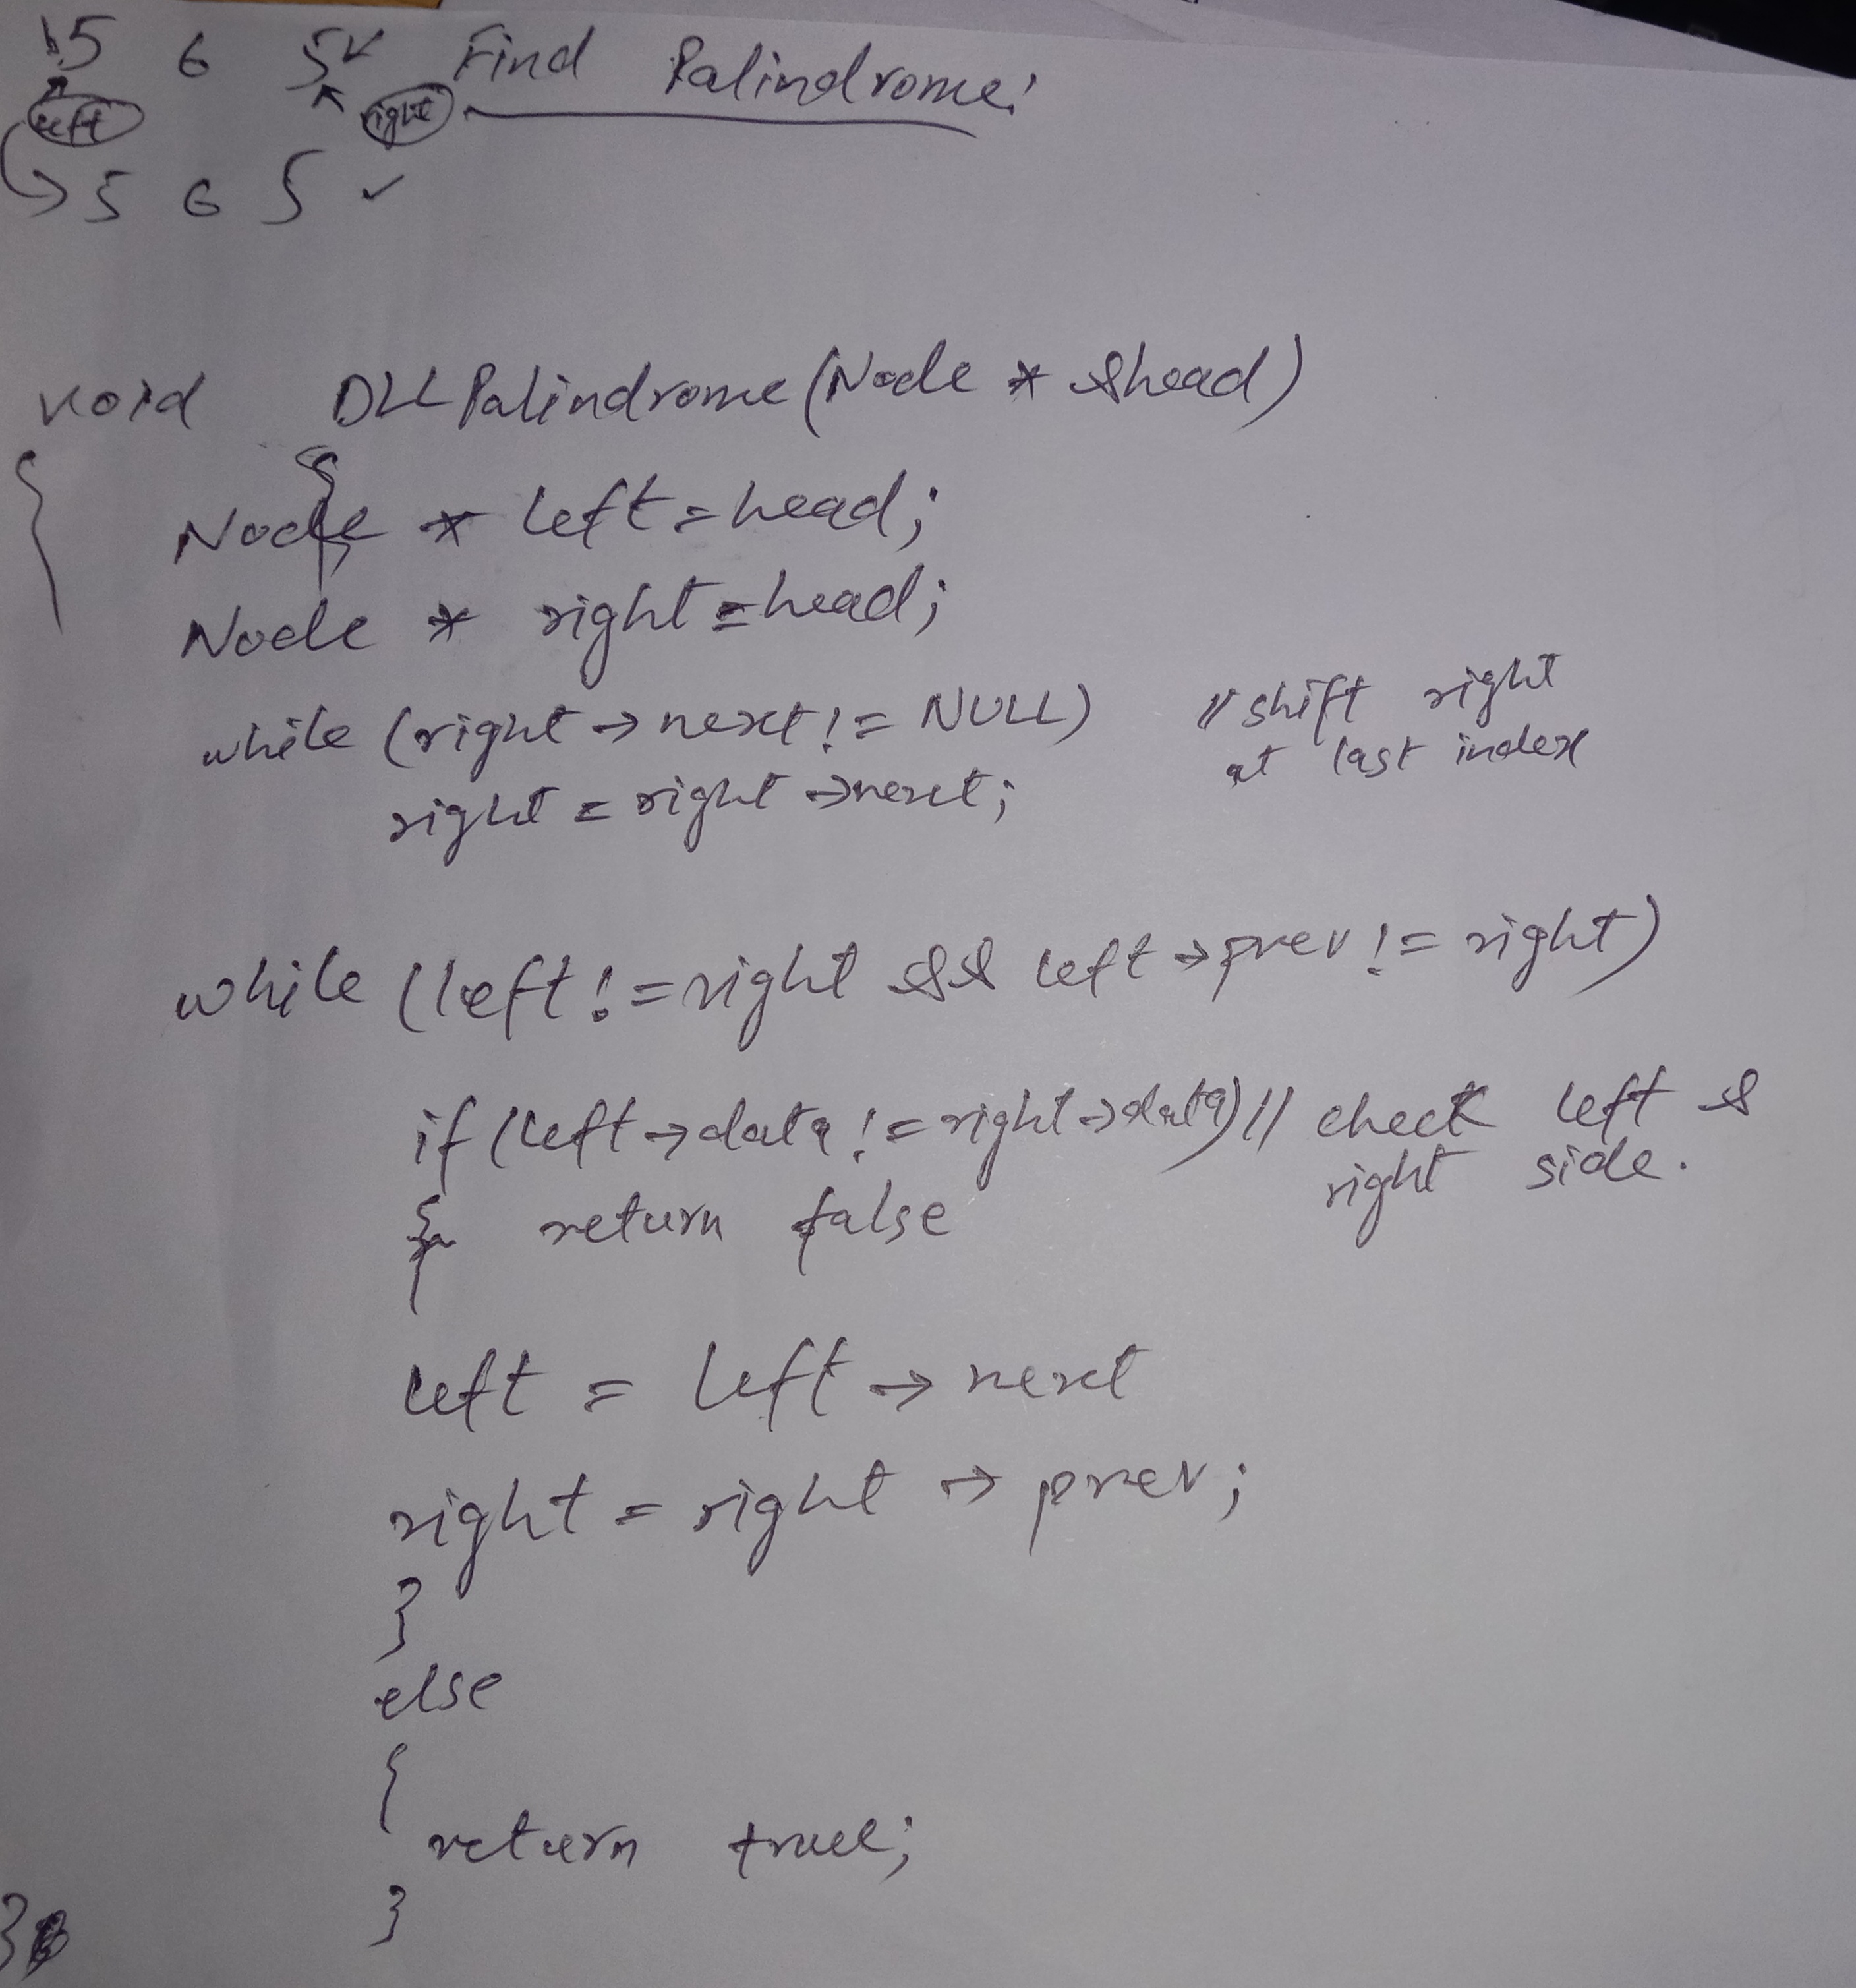 5 6 5 Find Palindrome:
left right
5 6 5 ✓
void DLLPalindrome(Node * &head)
{
Node * left = head;
Node * right = head;
while (right → next != NULL) // shift right
at last index
right = right → next;
while (left != right && left → prev != right)
if (left → data != right → data) // check left &
right side.
{ return false
left = left → next
right = right → prev;
}
else
{
return true;
}
}